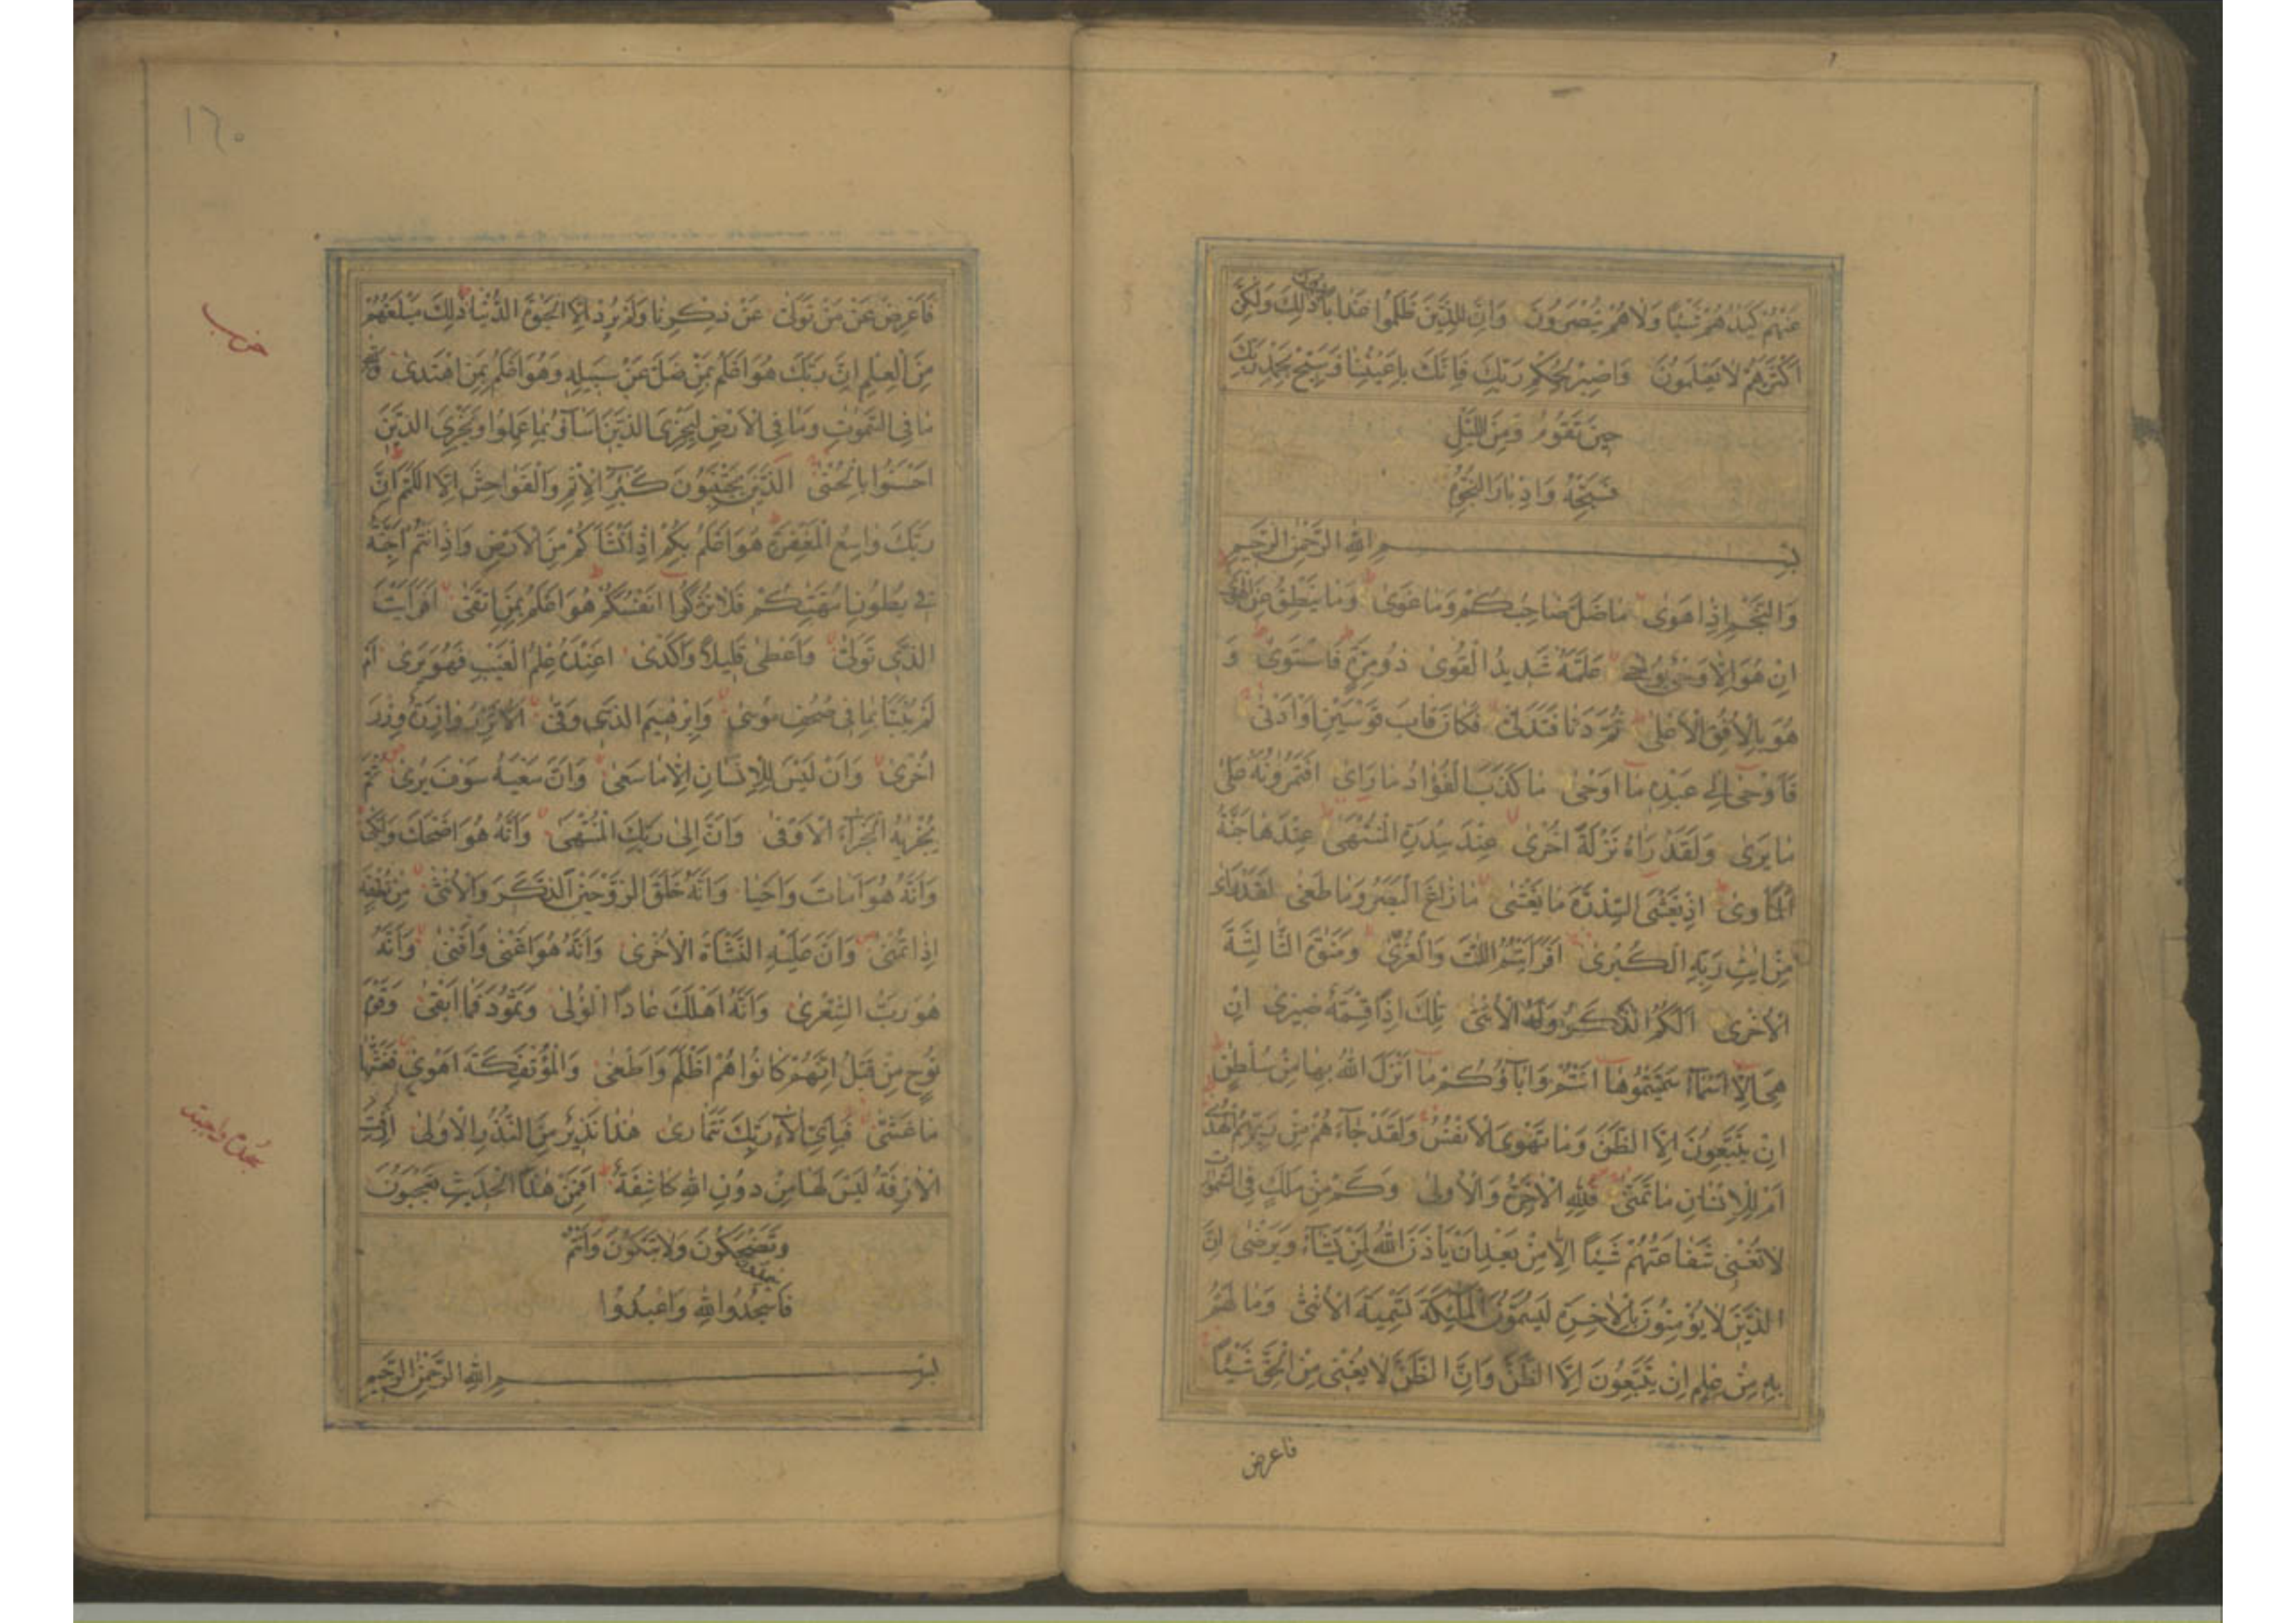 عَنْهُمْ كَيْدُهُمْ شَيْئًا وَلَا هُمْ يُنْصَرُونَ وَاِنَّ لِلَّذِينَ ظَلَمُوا عَذَابًا دُونَ ذٰلِكَ وَلٰكِنَّ
اَكْثَرَهُمْ لَا يَعْلَمُونَ وَاصْبِرْ لِحُكْمِ رَبِّكَ فَاِنَّكَ بِاَعْيُنِنَا وَسَبِّحْ بِحَمْدِ رَبِّكَ
حِينَ تَقُومُ وَمِنَ اللَّيْلِ
فَسَبِّحْهُ وَاِدْبَارَ النُّجُومِ
بِسْمِ اللّٰهِ الرَّحْمٰنِ الرَّحِيمِ
وَالنَّجْمِ اِذَا هَوٰى مَا ضَلَّ صَاحِبُكُمْ وَمَا غَوٰى وَمَا يَنْطِقُ عَنِ الْهَوٰى
اِنْ هُوَ اِلَّا وَحْيٌ يُوحٰى عَلَّمَهُ شَدِيدُ الْقُوٰى ذُو مِرَّةٍ فَاسْتَوٰى وَ
هُوَ بِالْاُفُقِ الْاَعْلٰى ثُمَّ دَنَا فَتَدَلّٰى فَكَانَ قَابَ قَوْسَيْنِ اَوْ اَدْنٰى
فَاَوْحٰى اِلٰى عَبْدِهِ مَا اَوْحٰى مَا كَذَبَ الْفُؤَادُ مَا رَاٰى اَفَتُمَرُونَهُ عَلٰى
مَا يَرٰى وَلَقَدْ رَاٰهُ نَزْلَةً اُخْرٰى عِنْدَ سِدْرَةِ الْمُنْتَهٰى عِنْدَهَا جَنَّةُ
الْمَاْوٰى اِذْ يَغْشَى السِّدْرَةَ مَا يَغْشٰى مَا زَاغَ الْبَصَرُ وَمَا طَغٰى لَقَدْ رَاٰى
مِنْ اٰيٰتِ رَبِّهِ الْكُبْرٰى اَفَرَاَيْتُمُ اللّٰتَ وَالْعُزّٰى وَمَنٰوةَ الثَّالِثَةَ
الْاُخْرٰى اَلَكُمُ الذَّكَرُ وَلَهُ الْاُنْثٰى تِلْكَ اِذًا قِسْمَةٌ ضِيزٰى اِنْ
هِيَ اِلَّا اَسْمَاءٌ سَمَّيْتُمُوهَا اَنْتُمْ وَاٰبَاؤُكُمْ مَا اَنْزَلَ اللّٰهُ بِهَا مِنْ سُلْطٰنٍ
اِنْ يَتَّبِعُونَ اِلَّا الظَّنَّ وَمَا تَهْوَى الْاَنْفُسُ وَلَقَدْ جَاءَهُمْ مِنْ رَبِّهِمُ الْهُدٰى
اَمْ لِلْاِنْسَانِ مَا تَمَنّٰى فَلِلّٰهِ الْاٰخِرَةُ وَالْاُولٰى وَكَمْ مِنْ مَلَكٍ فِي السَّمٰوٰتِ
لَا تُغْنِي شَفَاعَتُهُمْ شَيْئًا اِلَّا مِنْ بَعْدِ اَنْ يَاْذَنَ اللّٰهُ لِمَنْ يَشَاءُ وَيَرْضٰى اِنَّ
الَّذِينَ لَا يُؤْمِنُونَ بِالْاٰخِرَةِ لَيُسَمُّونَ الْمَلٰئِكَةَ تَسْمِيَةَ الْاُنْثٰى وَمَا لَهُمْ
بِهِ مِنْ عِلْمٍ اِنْ يَتَّبِعُونَ اِلَّا الظَّنَّ وَاِنَّ الظَّنَّ لَا يُغْنِي مِنَ الْحَقِّ شَيْئًا
فاعرض
١٦٠
فَاَعْرِضْ عَنْ مَنْ تَوَلّٰى عَنْ ذِكْرِنَا وَلَمْ يُرِدْ اِلَّا الْحَيٰوةَ الدُّنْيَا ذٰلِكَ مَبْلَغُهُمْ
مِنَ الْعِلْمِ اِنَّ رَبَّكَ هُوَ اَعْلَمُ بِمَنْ ضَلَّ عَنْ سَبِيلِهِ وَهُوَ اَعْلَمُ بِمَنِ اهْتَدٰى وَلِلّٰهِ
مَا فِي السَّمٰوٰتِ وَمَا فِي الْاَرْضِ لِيَجْزِيَ الَّذِينَ اَسَاؤُا بِمَا عَمِلُوا وَيَجْزِيَ الَّذِينَ
اَحْسَنُوا بِالْحُسْنٰى اَلَّذِينَ يَجْتَنِبُونَ كَبٰئِرَ الْاِثْمِ وَالْفَوَاحِشَ اِلَّا اللَّمَمَ اِنَّ
رَبَّكَ وَاسِعُ الْمَغْفِرَةِ هُوَ اَعْلَمُ بِكُمْ اِذْ اَنْشَاَكُمْ مِنَ الْاَرْضِ وَاِذْ اَنْتُمْ اَجِنَّةٌ
فِي بُطُونِ اُمَّهٰتِكُمْ فَلَا تُزَكُّوا اَنْفُسَكُمْ هُوَ اَعْلَمُ بِمَنِ اتَّقٰى اَفَرَاَيْتَ
الَّذِي تَوَلّٰى وَاَعْطٰى قَلِيلًا وَاَكْدٰى اَعِنْدَهُ عِلْمُ الْغَيْبِ فَهُوَ يَرٰى اَمْ
لَمْ يُنَبَّاْ بِمَا فِي صُحُفِ مُوسٰى وَاِبْرٰهِيمَ الَّذِي وَفّٰى اَلَّا تَزِرُ وَازِرَةٌ وِزْرَ
اُخْرٰى وَاَنْ لَيْسَ لِلْاِنْسَانِ اِلَّا مَا سَعٰى وَاَنَّ سَعْيَهُ سَوْفَ يُرٰى ثُمَّ
يُجْزٰيهُ الْجَزَاءَ الْاَوْفٰى وَاَنَّ اِلٰى رَبِّكَ الْمُنْتَهٰى وَاَنَّهُ هُوَ اَضْحَكَ وَاَبْكٰى
وَاَنَّهُ هُوَ اَمَاتَ وَاَحْيَا وَاَنَّهُ خَلَقَ الزَّوْجَيْنِ الذَّكَرَ وَالْاُنْثٰى مِنْ نُطْفَةٍ
اِذَا تُمْنٰى وَاَنَّ عَلَيْهِ النَّشْاَةَ الْاُخْرٰى وَاَنَّهُ هُوَ اَغْنٰى وَاَقْنٰى وَاَنَّهُ
هُوَ رَبُّ الشِّعْرٰى وَاَنَّهُ اَهْلَكَ عَادًا الْاُولٰى وَثَمُودَ فَمَا اَبْقٰى وَقَوْمَ
نُوحٍ مِنْ قَبْلُ اِنَّهُمْ كَانُوا هُمْ اَظْلَمَ وَاَطْغٰى وَالْمُؤْتَفِكَةَ اَهْوٰى فَغَشّٰيهَا
مَا غَشّٰى فَبِاَيِّ اٰلَاءِ رَبِّكَ تَتَمَارٰى هٰذَا نَذِيرٌ مِنَ النُّذُرِ الْاُولٰى اَزِفَتِ
الْاٰزِفَةُ لَيْسَ لَهَا مِنْ دُونِ اللّٰهِ كَاشِفَةٌ اَفَمِنْ هٰذَا الْحَدِيثِ تَعْجَبُونَ
وَتَضْحَكُونَ وَلَا تَبْكُونَ وَاَنْتُمْ
سَامِدُونَ
فَاسْجُدُوا لِلّٰهِ وَاعْبُدُوا
بِسْمِ اللّٰهِ الرَّحْمٰنِ الرَّحِيمِ